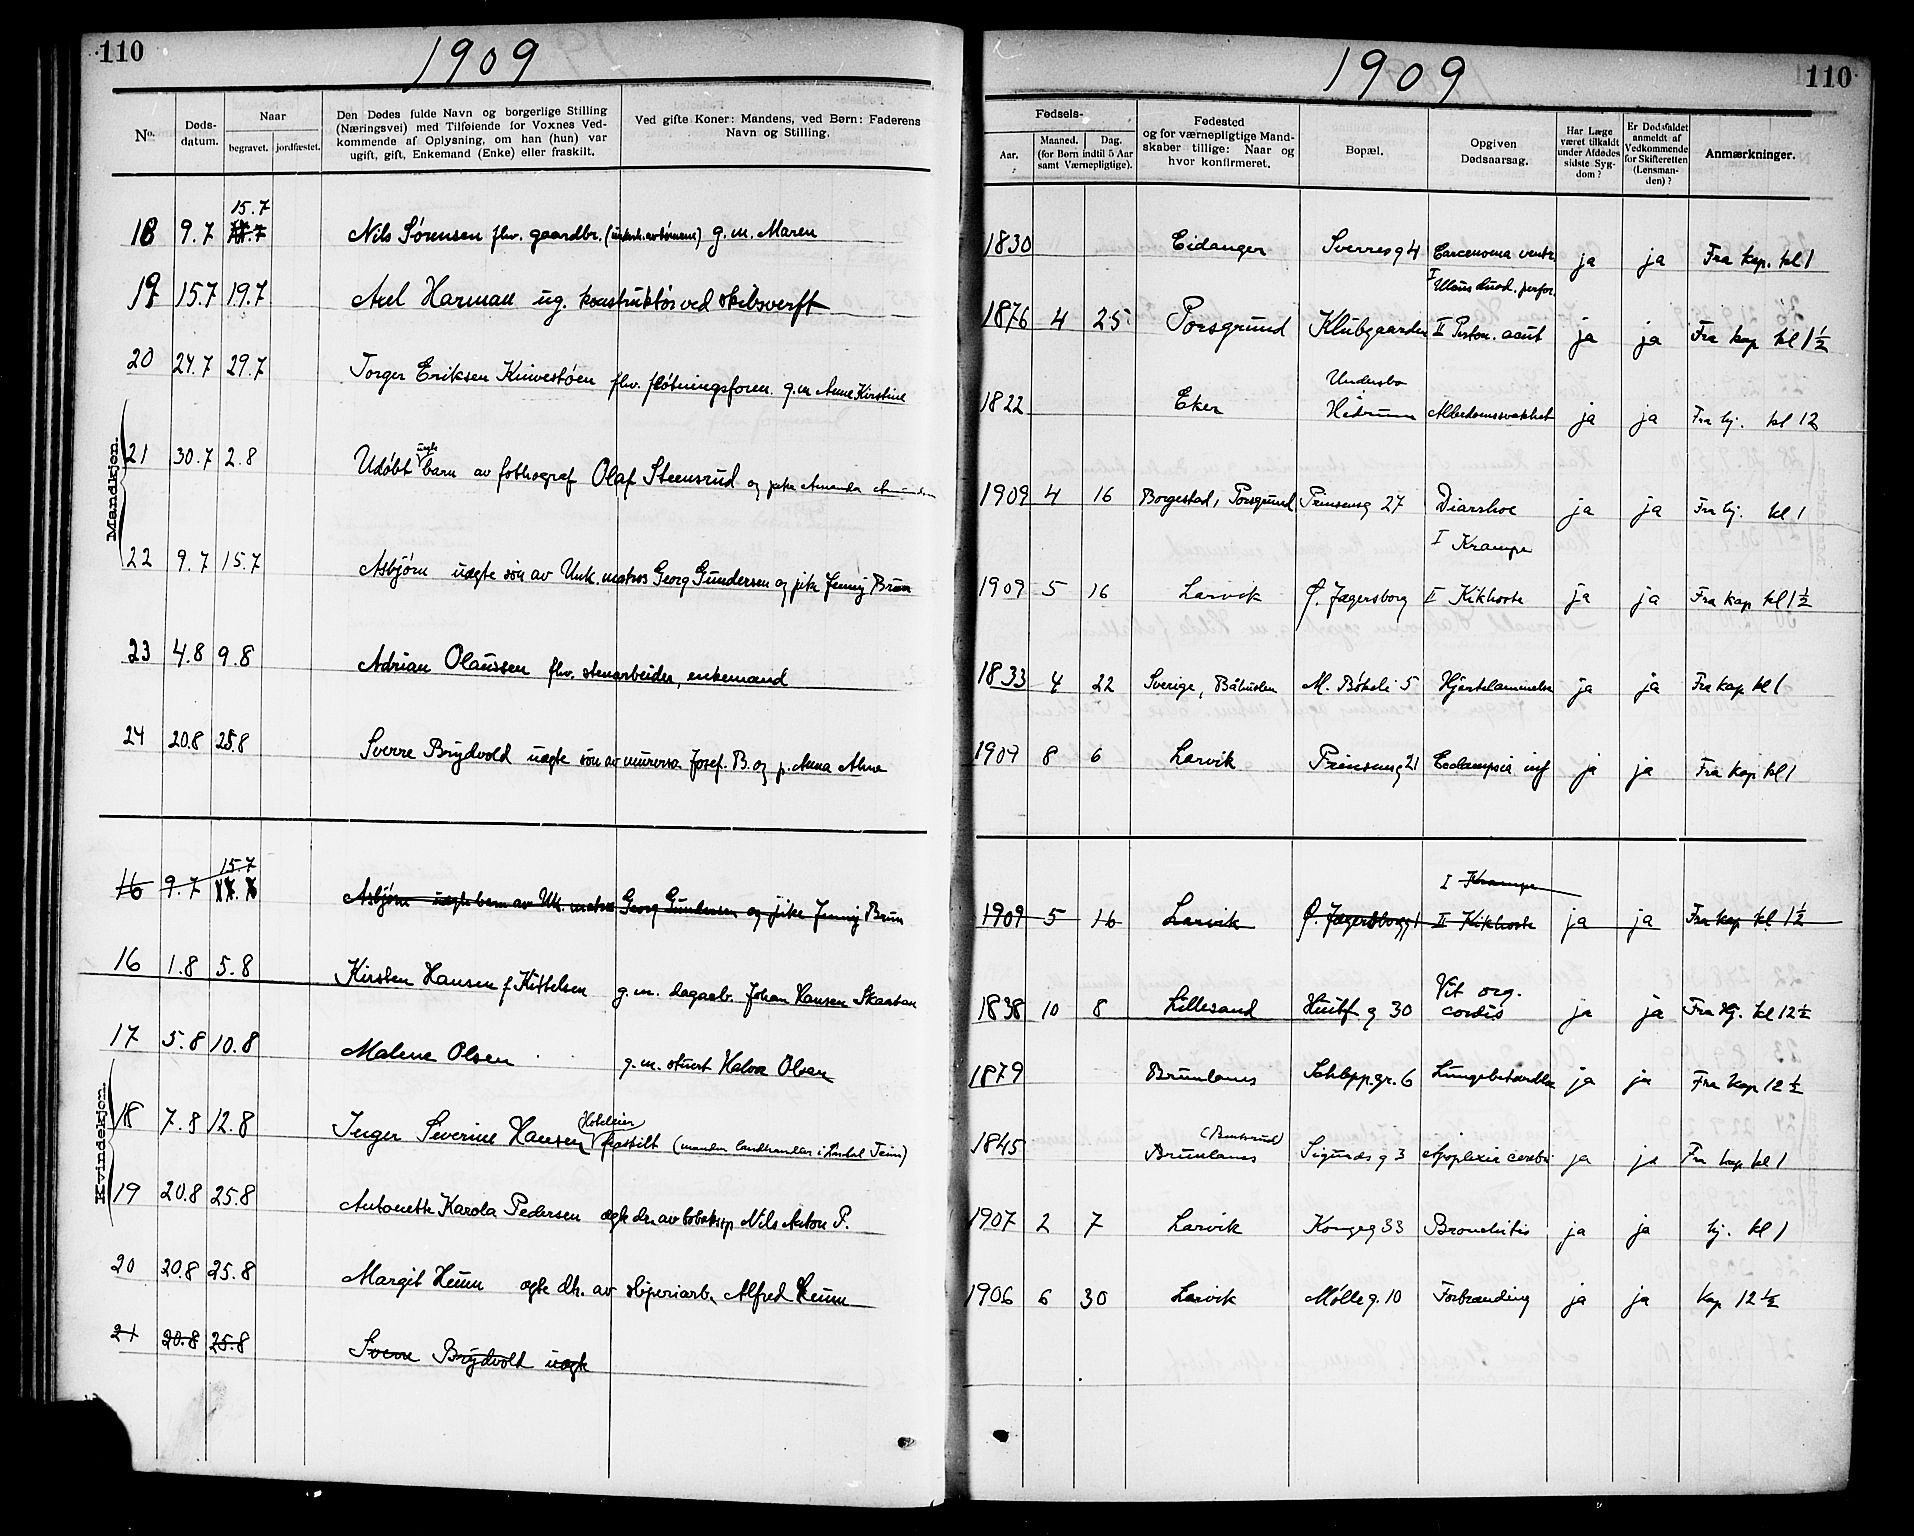 110
1909
No.
Døds-
datum.
Naar
begravet.
jordfæstet.
Den Dødes fulde Navn og borgerlige Stilling
(Næringsvei) med Tilføiende for Voxnes Ved-
kommende af Oplysning, om han (hun) var
ugift, gift, Enkemand (Enke) eller fraskilt.
Ved gifte Koner: Mandens, ved Børn: Faderens
Navn og Stilling.
Mandkjøn.
15.7
18 9.7 Nils Sørensen fhv. gaardbr. g. m. Maren
19 15.7 19.7 Axel Harman ug. konstruktør ved skibsverft
20 24.7 29.7 Torger Eriksen fhv. fløtningsforen. g. m. Anne Kirstine
uegte
21 30.7 2.8 Udøbt barn av fothograf Olaf Steensrud og pike Amanda
22 9.7 15.7 Asbjørn uegte søn av Unk. matros Georg Gundersen og pike Jenny Brun
23 4.8 9.8 Adrian Olaussen fhv. stenarbeider, enkemand
24 20.8 25.8 Sverre Brydvold uegte søn av murersv. Josef. B. og p. Anna
15.7
16 9.7 Asbjørn uegte barn av Uk. matros Georg Gundersen og pike Jenny Brun
16 1.8 5.8 Kirsten Hansen f Kittelsen g. m. dagarb. Johan Hansen
Kvindekjøn.
17 5.8 10.8 Malene Olsen g. m. stuert Halvor Olsen
18 7.8 12.8 Inger Severine Hansen fraskilt (manden landhandler i
19 20.8 25.8 Antonette Karola Pedersen egte dr. av Nils Anton P.
20 20.8 25.8 Margit Heum egte dtr. av sliperiarb. Alfred Heum
21 20.8 25.8 Sverre Brydvold uegte
1909
110
Fødsels-
Aar.
Maaned.
Dag.
(for Børn indtil 5 Aar
samt Værnepligtige).
Fødested
og for værnepligtige Mand-
skaber tillige: Naar og
hvor konfirmeret.
Bopæl.
Opgiven
Dødsaarsag.
Har Læge
været tilkaldt
under Afdødes
sidste Syg-
dom?
Er Dødsfaldet
anmeldt af
Vedkommende
for Skifteretten
(Lensman-
den)?
Anmærkninger.
1830 Eidanger Sverresg 4 Carcenoma ventr. ja ja Fra kap. kl 1
I Ulcus duod. perfor.
1876 4 25 Porsgrund Klubgaarden II Periton. acut ja ja Fra kap kl 1½
Undersbo
1822 Eker Hedrum Alderdomssvakhet ja ja Fra hj. kl 12
1909 4 16 Borgestad, Porsgrund Prinsensg 27 Diarrhoe ja ja Fra hj. kl 1
I Krampe
1909 5 16 Larvik Ø. Jægersborg II Kikhoste ja ja Fra kap kl 1½
1833 4 22 Sverige, Båhuslen M. Bökeli 5 Hjertelammelse ja ja Fra kap kl 1
1909 8 6 Larvik Prinsensg 21 Eclampsia inf ja ja Fra kap kl 1
I Krampe
1909 5 16 Larvik Ø. Jægersborgg 1 II Kikhoste ja ja Fra kap kl 1½
Vit org.
1838 10 8 Lillesand Huitf g 30 cordis ja ja Fra Hj. kl 12½
1879 Brunlanes Schleppgr. 6 ja ja Fra kap 12½
1845 Brunlanes Sigurds g 3 Apoplexia cerebri ja ja Fra kap kl 1
1907 2 7 Larvik Kongeg 33 Bronchitis ja ja hj. kl 1
1906 6 30 Larvik Mølleg. 10 Forbrænding ja ja kap 12½